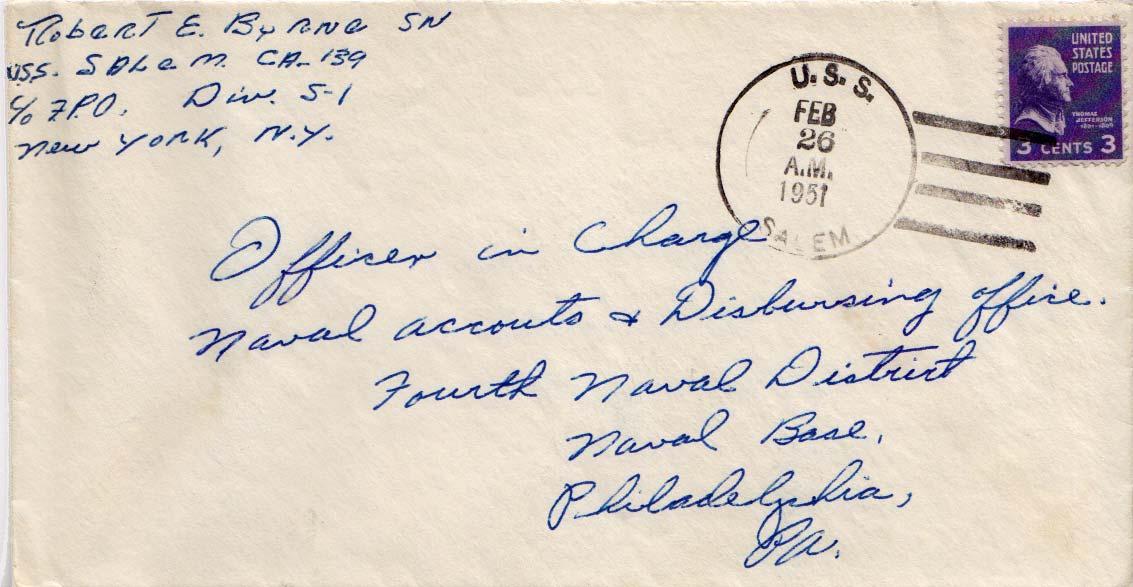 Robert E. Byrne SN
USS. SALem. CA-139
c/o F.P.O. Div. S-1
New YORK, N.Y.
U.S.S.
FEB
26
A.M.
1951
SALEM
UNITED
STATES
POSTAGE
THOMAS
JEFFERSON
1801-1809
3 CENTS 3
Officer in Charge
Naval accouts & Disbursing office.
Fourth Naval District
Naval Base,
Philadelphia,
Pa.